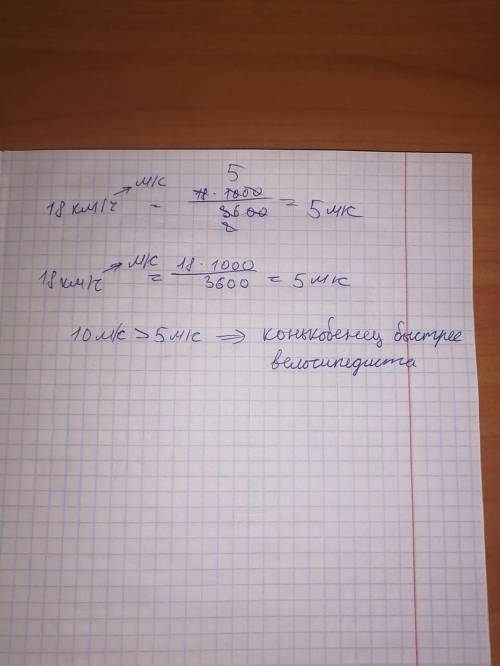 5
18 км/ч → м/с = 18 · 1000 / 3600 = 5 м/с
2
18 км/ч → м/с = 18 · 1000 / 3600 = 5 м/с
10 м/с > 5 м/с ⇒ конькобежец быстрее
велосипедиста